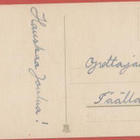 Hauskaa Joulua!
Opettaja
Täällä